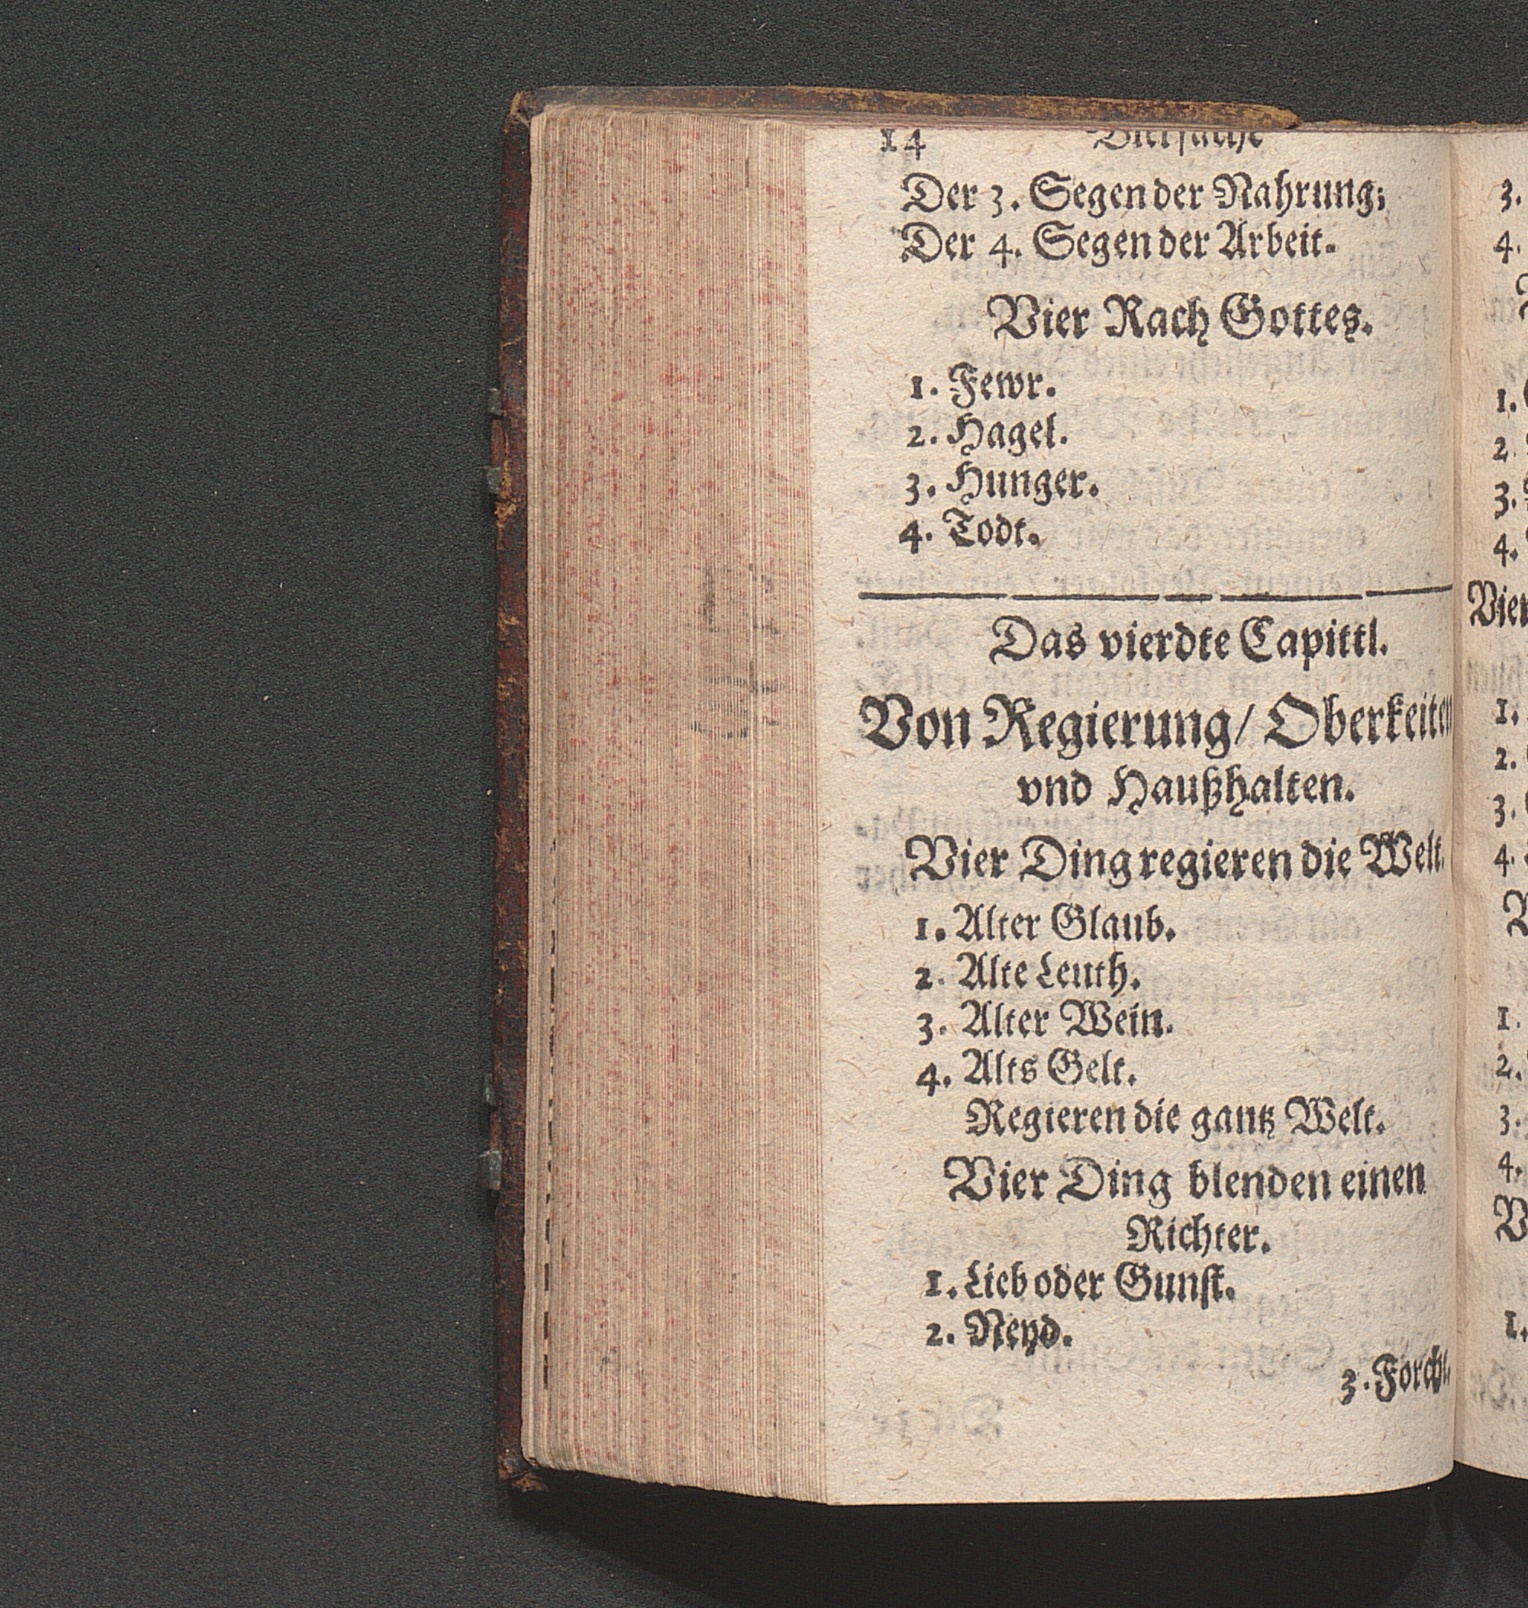 14 Vierfache
Der 3. Segen der Nahrung;
Der 4. Segen der Arbeit.
Vier Rach Gottes.
1. Fewr.
2. Hagel.
3. Hunger.
4. Todt.
Das vierdte Capittl.
Von Regierung/ Oberkeiten
vnd Haußhalten.
Vier Ding regieren die Welt.
1. Alter Glaub.
2. Alte Leuth.
3. Alter Wein.
4. Alts Gelt.
Regieren die gantz Welt.
Vier Ding blenden einen
Richter.
1. Lieb oder Gunst.
2. Neyd.
3. Forcht.
3.
4.
1.
2.
3.
4.
Vier
1.
2.
3.
4.
1.
2.
3.
4.
1.